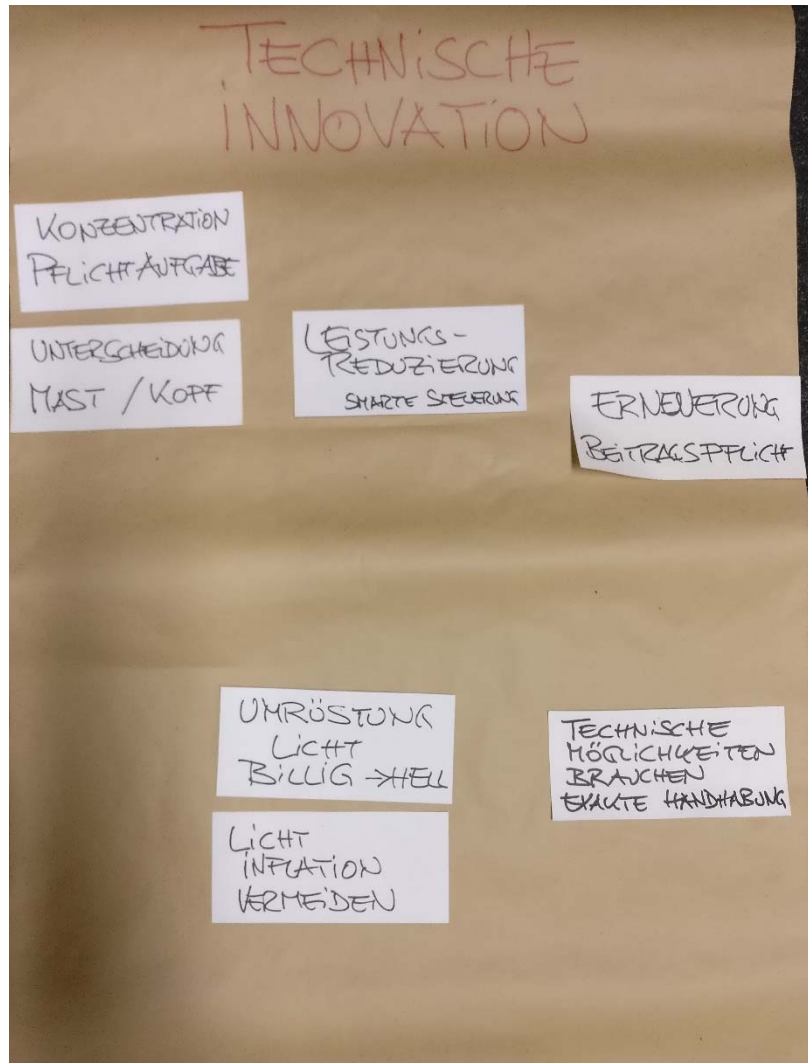 TECHNISCHE
INNOVATION
KONZENTRATION
PFLICHTAUFGABE
UNTERSCHEIDUNG
MAST / KOPF
LEISTUNGS-
REDUZIERUNG
SMARTE STEUERUNG
ERNEUERUNG
BEITRAGSPFLICHT
UMRÜSTUNG
LICHT
BILLIG → HELL
LICHT
INFLATION
VERMEIDEN
TECHNISCHE
MÖGLICHKEITEN
BRAUCHEN
EXAKTE HANDHABUNG